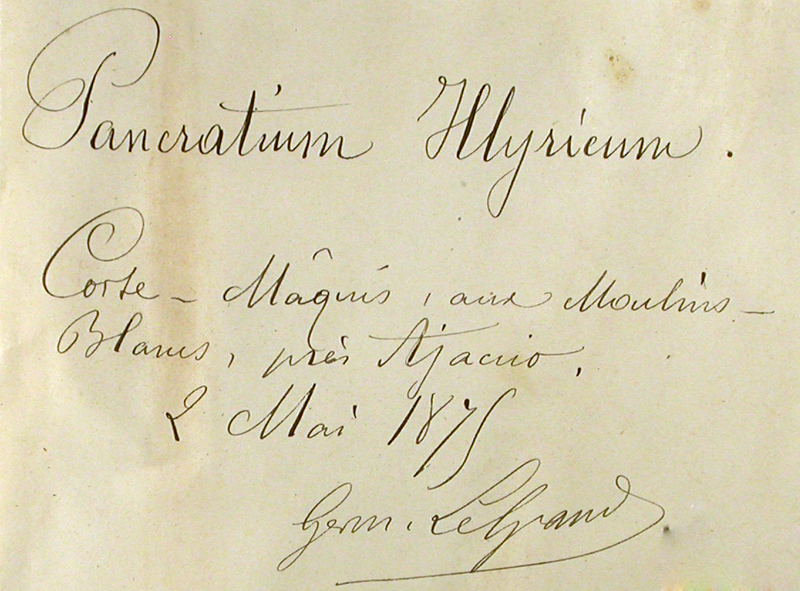 Pancratium Illyricum.
Corse – Mâquis, aux Moulins-
Blancs, près Ajaccio,
2 Mai 1875
Germ. LeGrand